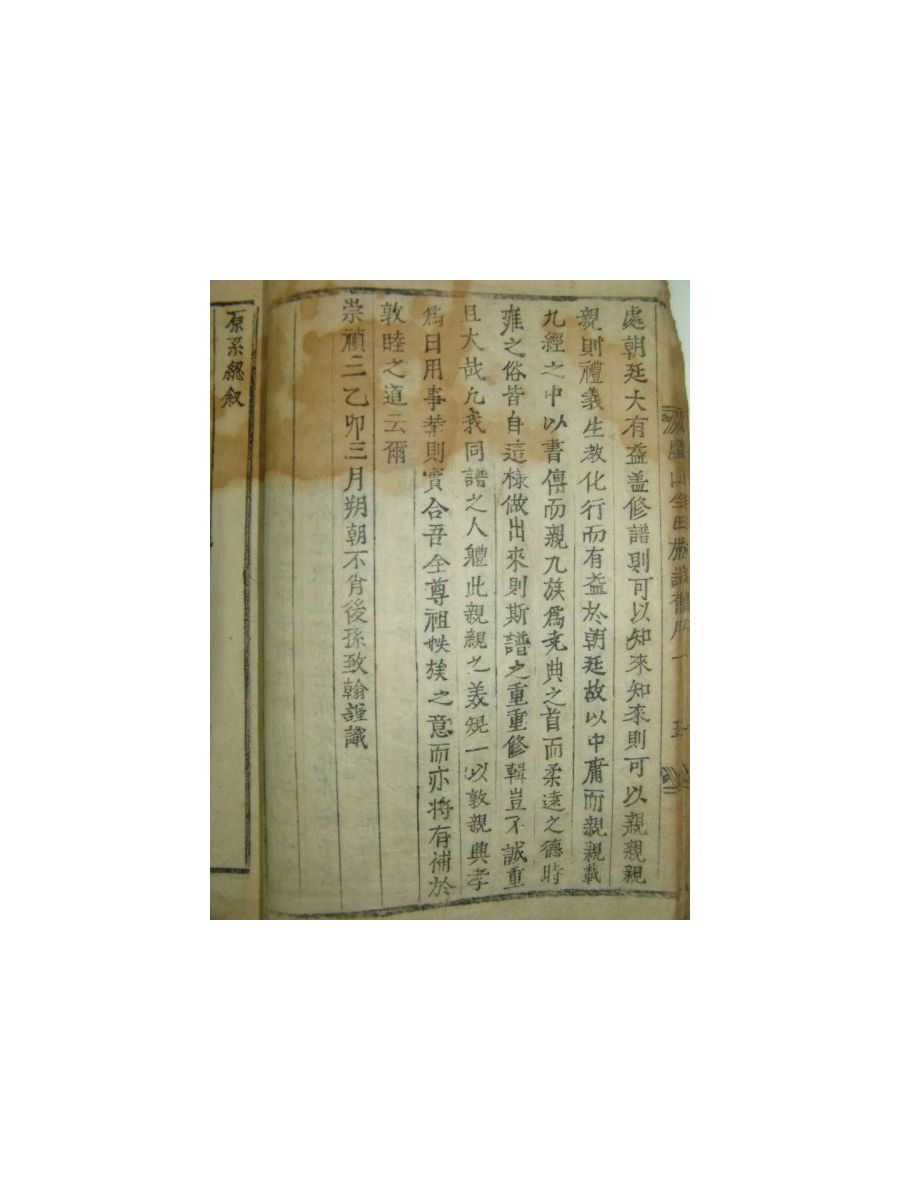 處朝廷大有益盖修譜則可以知來知來則可以親親親
親則禮義生教化行而有益於朝廷故以中庸而親親載
九經之中以書傳而親九族爲堯典之首而柔遠之德時
雍之俗皆自這樣做出來則斯譜之重重修輯豈不誠重
且大哉凡我同譜之人軆此親親之義規一以敦親興孝
爲日用事業則實合吾全尊祖收族之意而亦將有補於
敦睦之道云爾
崇禎三乙卯三月朔朝不肖後孫致翰謹識
原系總叙